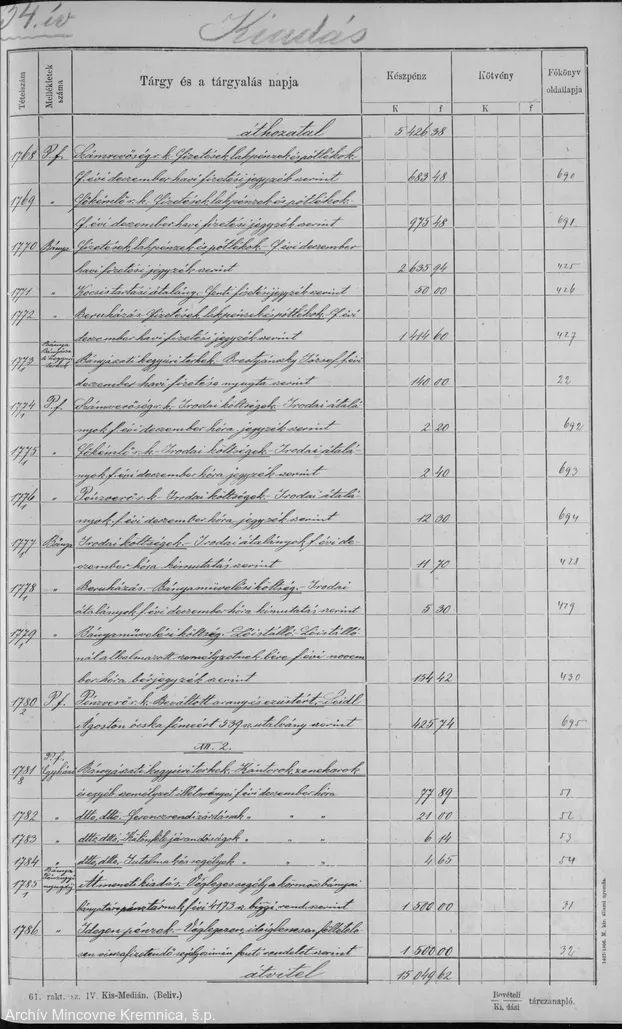 54. ív
Kiadás
Tételszám
Mellékletek száma
Tárgy és a tárgyalás napja
Készpénz
Kötvény
Főkönyv oldallapja
K f K f
áthozatal 5 426 38
1768 P.f. Számvevőség r. k. Fizetések, lakpénzek és pótlékok.
F. évi dezember havi fizetési jegyzék szerint 683 48 690
1769 " Főkémlő r. k. Fizetések, lakpénzek és pótlékok.
F. évi dezember havi fizetési jegyzék szerint 975 48 691
1770 Bánya Fizetések, lakpénzek és pótlékok. F. évi dezember
havi fizetési jegyzék szerint 2 635 94 425
1771 " Kocsistartási átalány. Fenti fizetési jegyzék szerint 50 00 426
1772 " Beruházás. Fizetések, lakpénzek és pótlékok. F. évi
dezember havi fizetési jegyzék szerint 1 414 60 427
1773 Bányászati kegyúri terhek. József f. évi
dezember havi fizetése nyugta szerint 140 00 22
1774 P.f. Számvevőség r. k. Irodai költségek. Irodai átalá-
nyok f. évi dezember hóra jegyzék szerint 2 20 692
1775 " Főkémlő r. k. Irodai költségek. Irodai átalá-
nyok f. évi dezember hóra jegyzék szerint 2 40 693
1776 " Pénzverő r. k. Irodai költségek. Irodai átalá-
nyok f. évi dezember hóra jegyzék szerint 12 30 694
1777 Bánya Irodai költségek. Irodai átalányok f. évi de-
zember hóra kimutatás szerint 11 70 428
1778 " Beruházás. Bányaművelési költség. Irodai
átalányok f. évi dezember hóra kimutatás szerint 5 30 429
1779 " Bányaművelési költség. Lóistálló. Lóistálló-
nál alkalmazott személyzetnek bére f. évi novem-
ber hóra bérjegyzék szerint 134 42 430
1780 P.f. Pénzverő r. k. Beváltott arany és ezüstért. Seidl
Ágoston ócska fémeért 539. utalvány szerint 425 74 695
XII. 2.
1781 Bányászati kegyúri terhek. Kántorok, zenekarok
és egyéb személyzet illetményei f. évi dezember hóra 77 89 51
1782 " dtto, dtto. " " " 21 00 52
1783 " dtto, dtto. Különféle járandóságok " " " 6 14 53
1784 " dtto, dtto. Jutalmak és segélyek " " " 4 65 54
1785 Átmeneti kiadás. Végleges segély a körmöczbányai
bányatárspénztárnak, f. évi 4173 sz. rend. szerint 1 500 00 31
1786 " Idegen pénzek.
fenti rendelet szerint 1 500 00 32
átvitel 15 049 62
61. rakt. sz. IV. Kis-Medián. (Beliv.)
Bevételi
Ki. dási tárczanapló.
Archív Mincovne Kremnica, š.p.